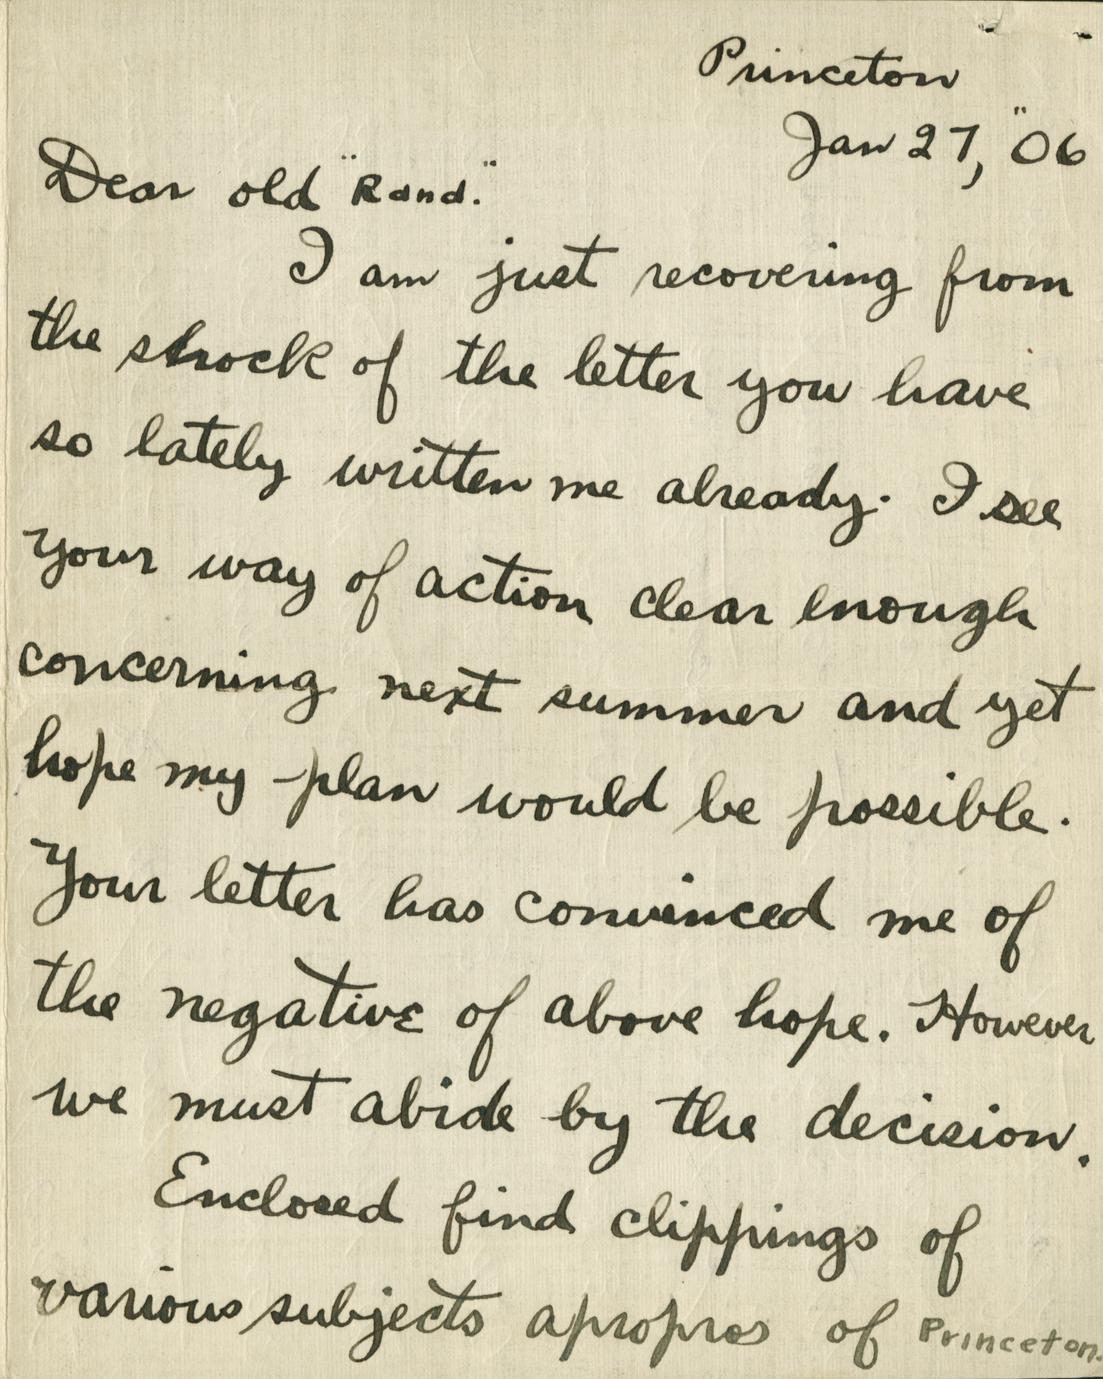 Princeton
Jan 27, "06
Dear old "Rand."
I am just recovering from
the shock of the letter you have
so lately written me already. I see
your way of action clear enough
concerning next summer and yet
hope my plan would be possible.
Your letter has convinced me of
the negative of above hope. However
we must abide by the decision.
Enclosed find clippings of
various subjects apropros of Princeton.